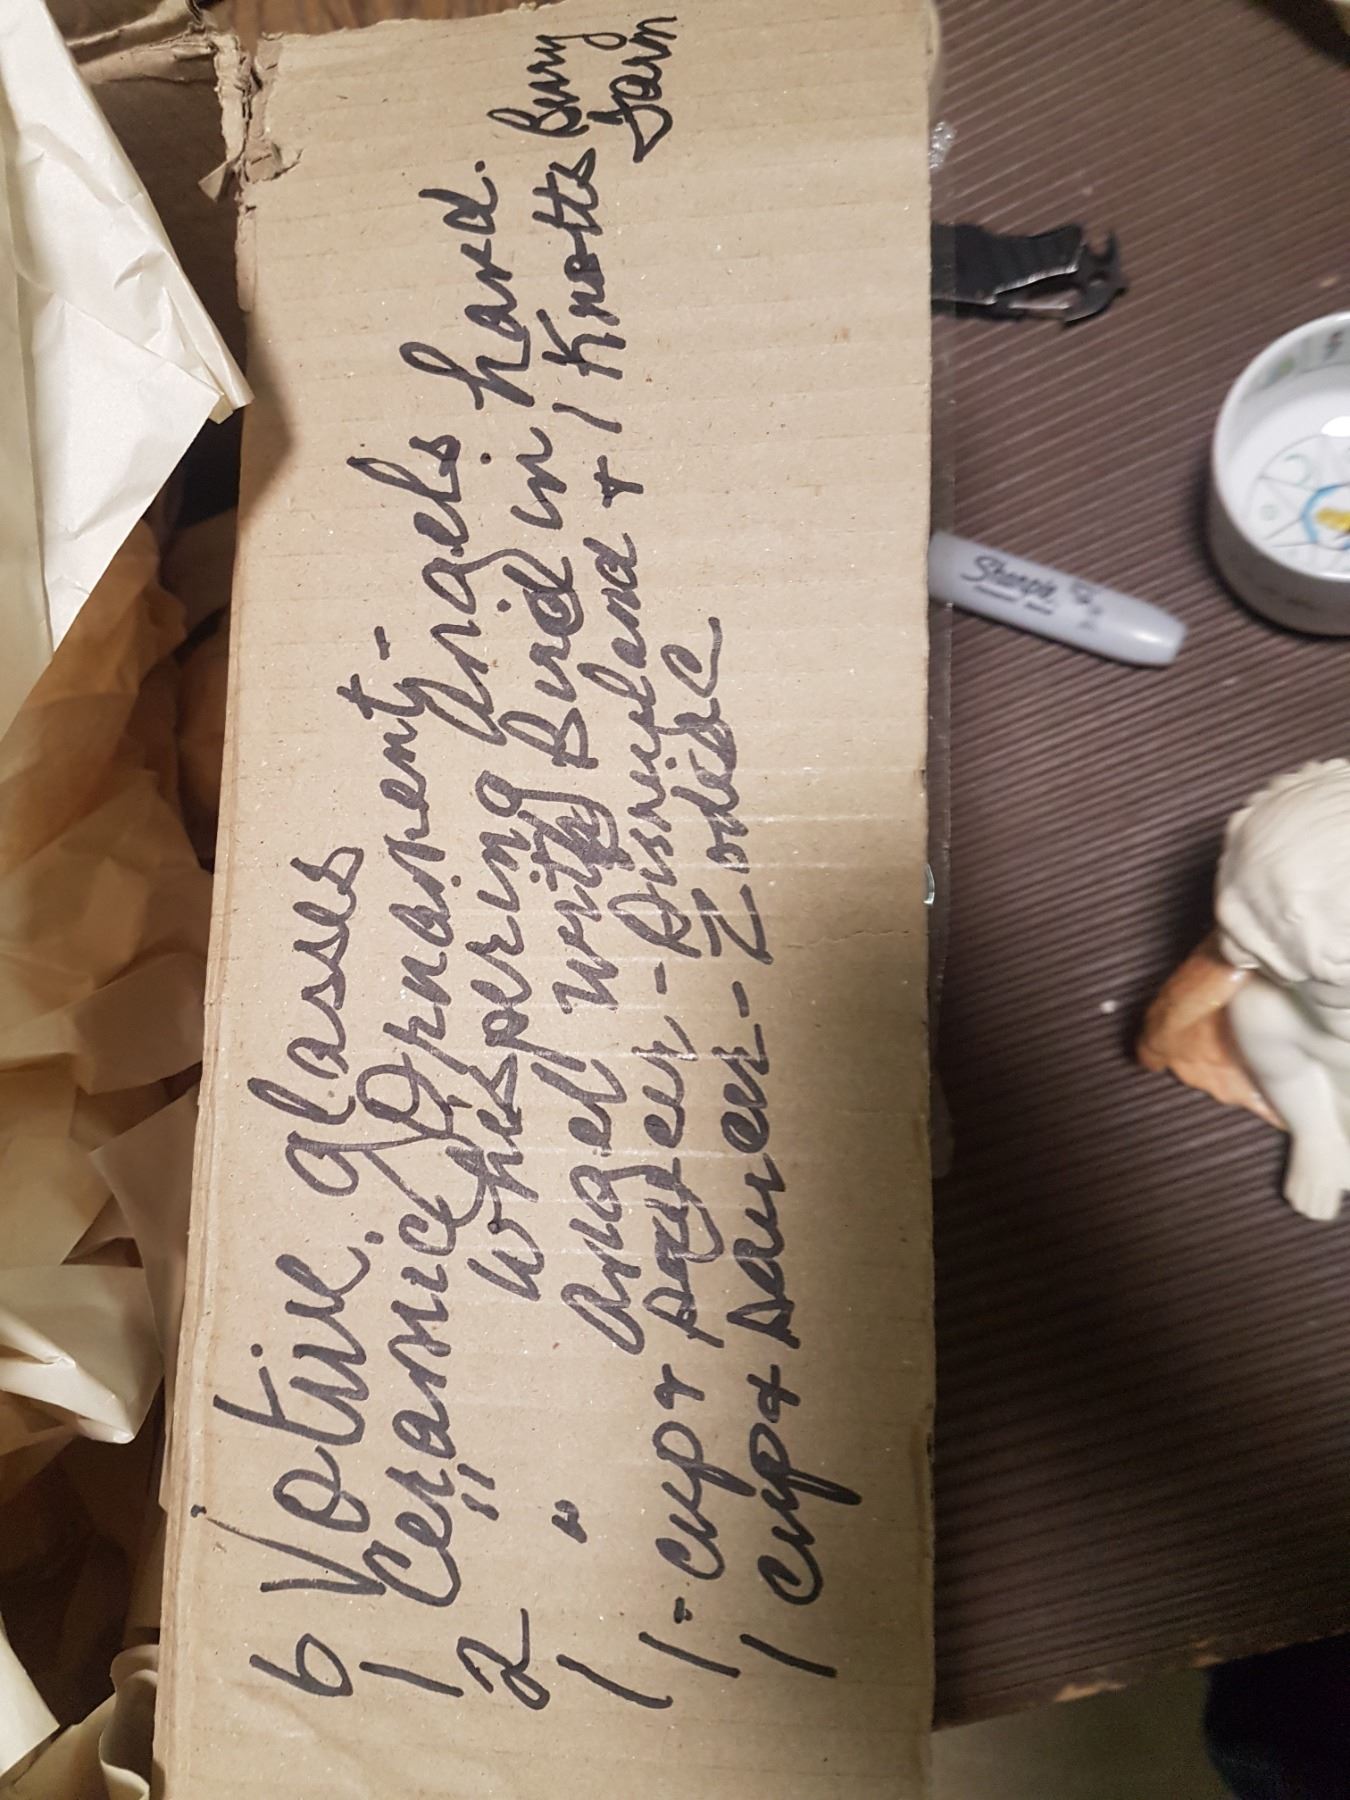 6 Votive glasses
1 Ceramic Ornament -
2 " whispering angels
1 " angel with Bird in hard.
1 - cup & saucer - Disneyland + 1 Knotts Berry Farm
1 cup & saucer - Zodiac
Sharpie